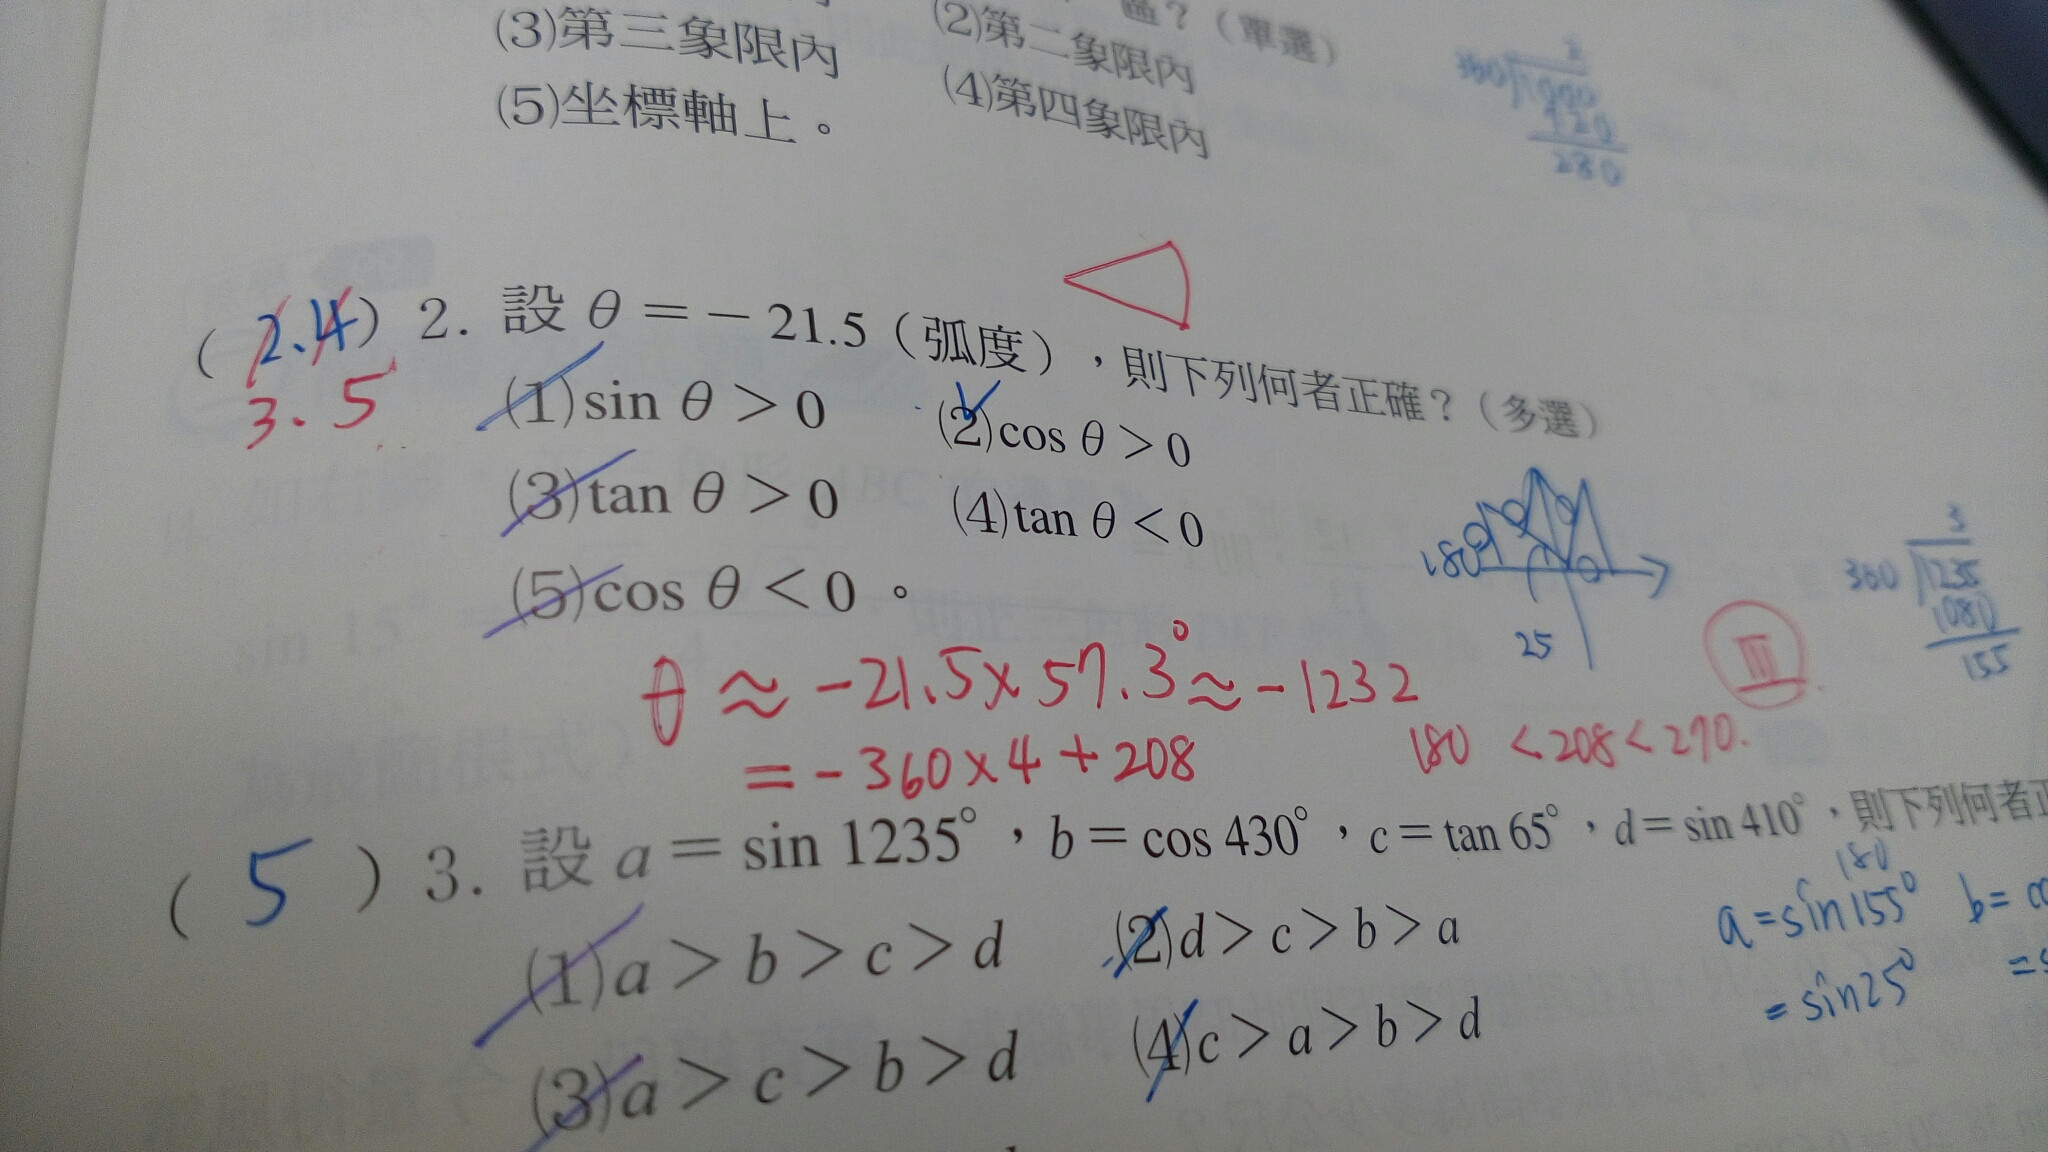 (3)第三象限內
(2)第二象限內
(5)坐標軸上。
(4)第四象限內
?(單選)
2
360 1000
720
280
( 2.4 ) 2. 設 θ = − 21.5 (弧度),則下列何者正確?(多選)
3. 5
(1) sin θ > 0
(2) cos θ > 0
(3) tan θ > 0
(4) tan θ < 0
(5) cos θ < 0。
180
25
3
360 1235
1080
155
θ ≈ -21.5 × 57.3° ≈ -1232
= -360 × 4 + 208
180 < 208 < 270.
III
( 5 ) 3. 設 a = sin 1235°,b = cos 430°,c = tan 65°,d = sin 410°,則下列何者正
(1) a > b > c > d
(2) d > c > b > a
(3) a > c > b > d
(4) c > a > b > d
180
a = sin155° b =
= sin25° =